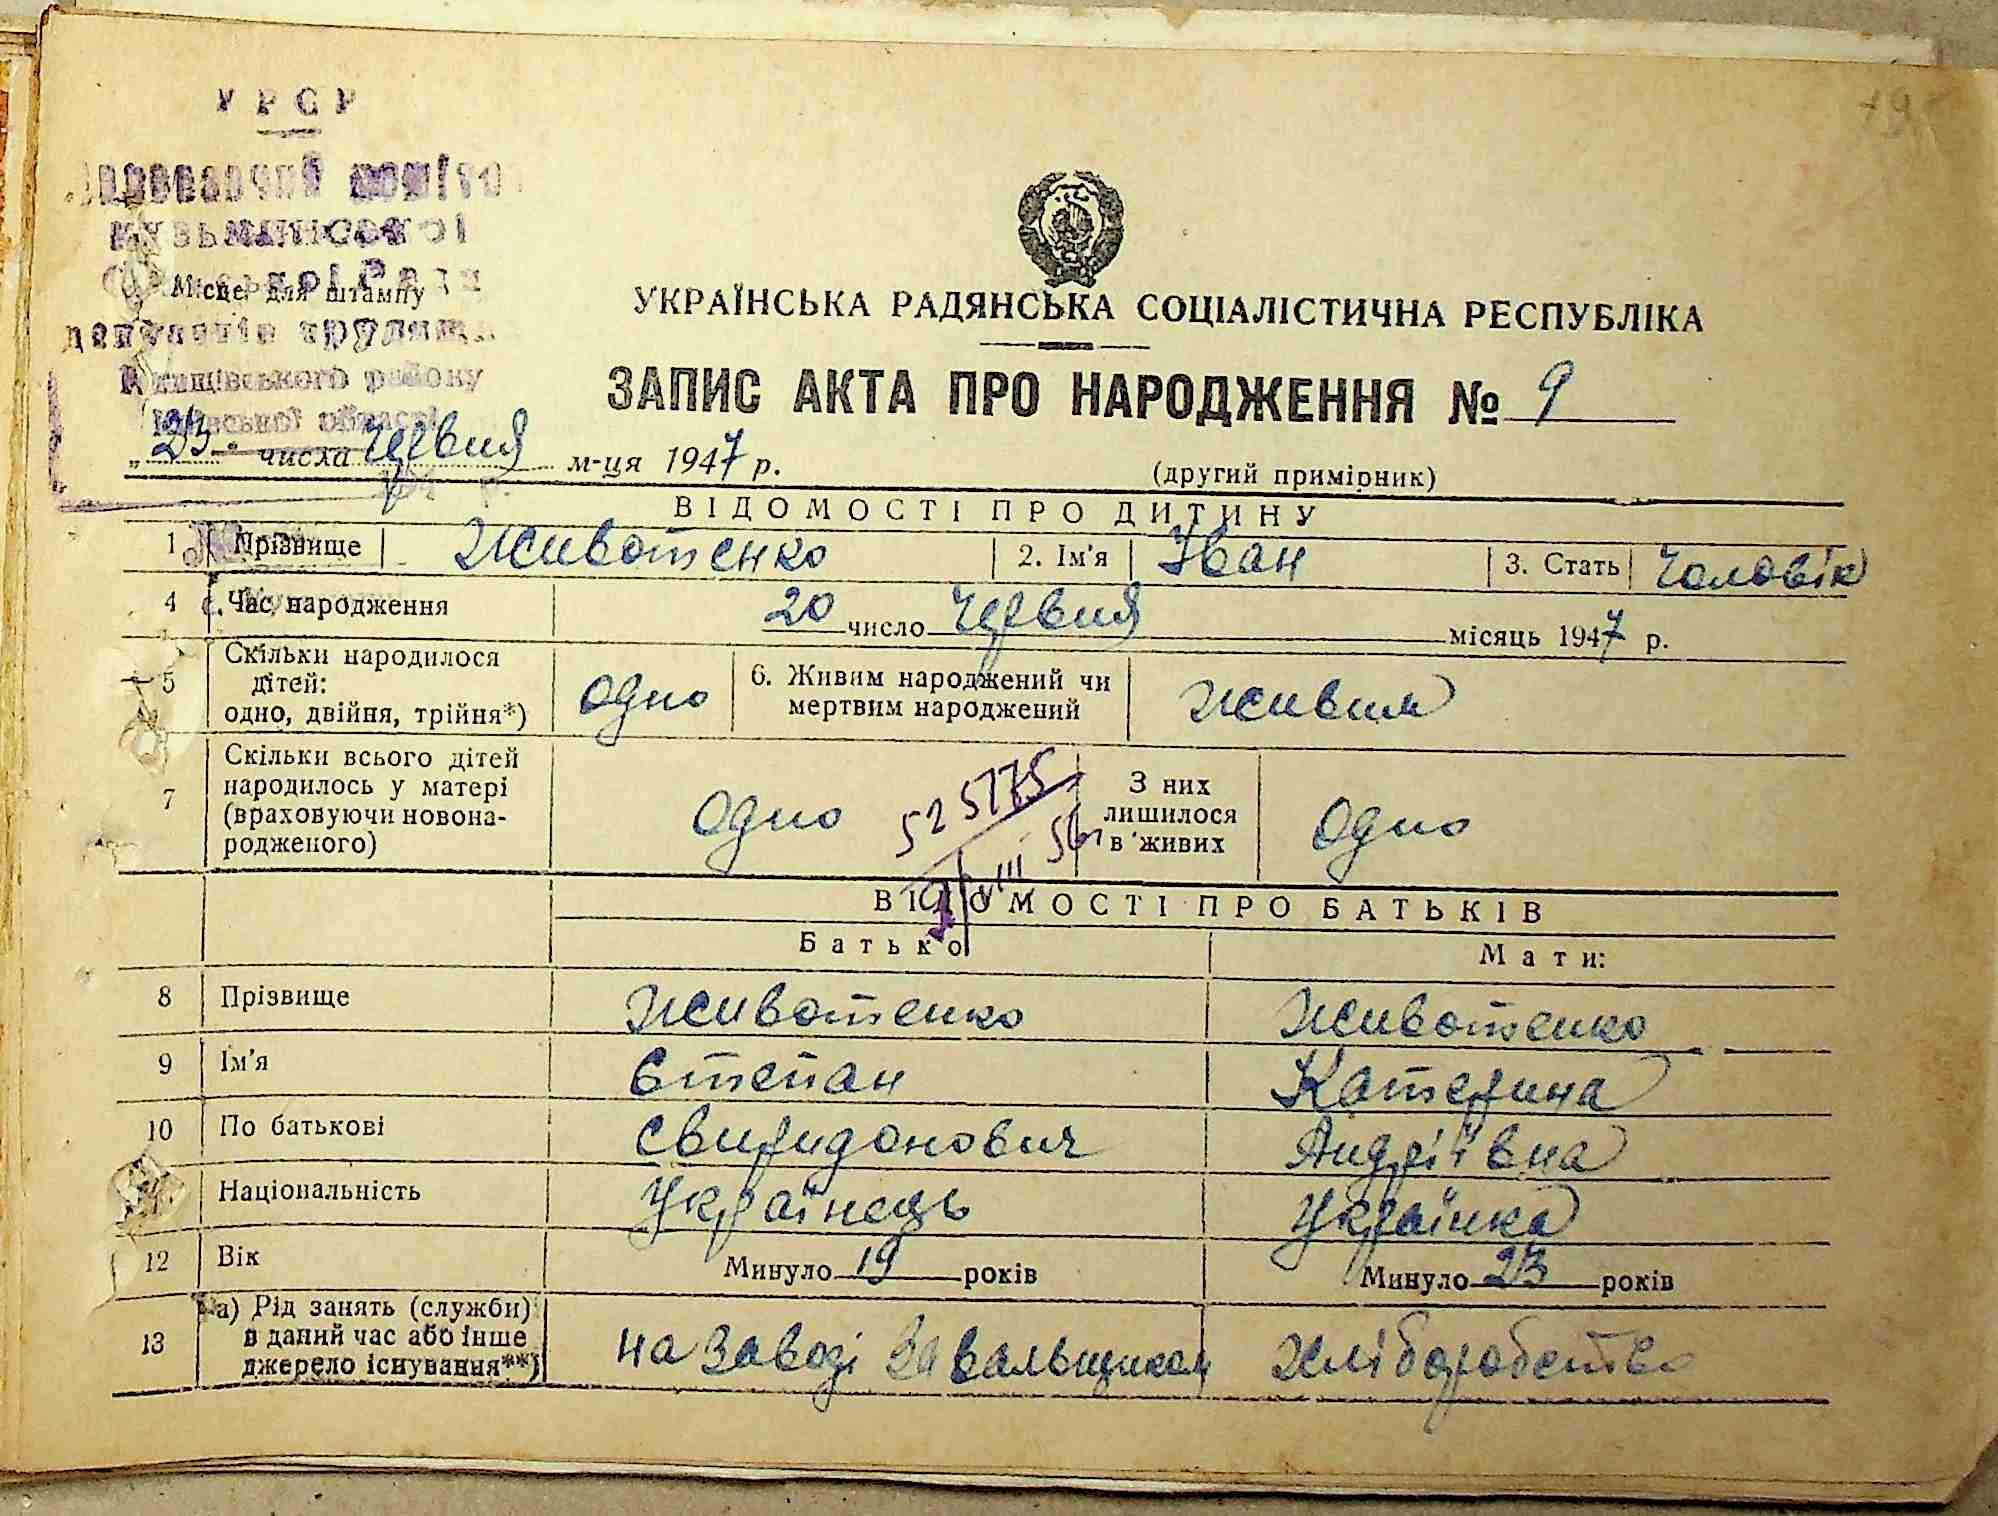 УРСР
Виконавчий коміт
Кузьминської
Сільської Ради
Місце для штампу
депутатів трудящ.
Кагарлицького району
Київської області
79
УКРАЇНСЬКА РАДЯНСЬКА СОЦІАЛІСТИЧНА РЕСПУБЛІКА
ЗАПИС АКТА ПРО НАРОДЖЕННЯ № 9
„23" числа Червня м-ця 1947 р.
(другий примірник)
ВІДОМОСТІ ПРО ДИТИНУ
1 Прізвище Животенко 2. Ім'я Іван 3. Стать Чоловік
4 Час народження 20 число Червня місяць 1947 р.
5 Скільки народилося дітей: одно, двійня, трійня*) Одно 6. Живим народжений чи мертвим народжений Живим
7 Скільки всього дітей народилось у матері (враховуючи новонародженого) Одно З них лишилося в живих Одно
525775
VIII 56
ВІДОМОСТІ ПРО БАТЬКІВ
Батько Мати:
8 Прізвище Животенко Животенко
9 Ім'я Степан Катерина
10 По батькові Свиридонович Андріївна
Національність Українець Українка
12 Вік Минуло 19 років Минуло 23 років
13 а) Рід занять (служби) в даний час або інше джерело існування**) на заводі Завальщиком Хліборобство